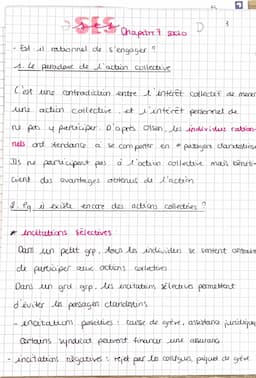 SES Chapitre 7 socio
- Est-il rationnel de s'engager ?
1. Le paradoxe de l'action collective
C'est une contradiction entre l'intérêt collectif de mener
une action collective et l'intérêt personnel de
ne pas y participer. D'après Olson, les individus ration-
nels ont tendance à se comporter en "passagers clandestins
Ils ne participent pas à l'action collective mais bénéfi-
cient des avantages obtenus de l'action.
2. Pq il existe encore des actions collectives ?
incitations sélectives
Dans un petit grp, tous les individus se sentent
de participer aux actions collectives
Dans un grd grp, les incitations sélectives permettent
d'éviter les passagers clandestins
- incitations positives : caisse de grève, assistance juridique
Certains syndicat peuvent financer une assurance
- incitations négatives : rejet par les collègues, piquet de grève